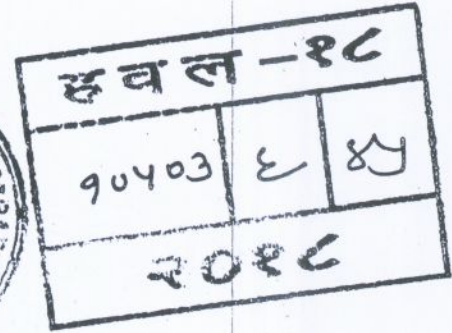 हवल -१८
१०५०३ ६ ४५
२०१८